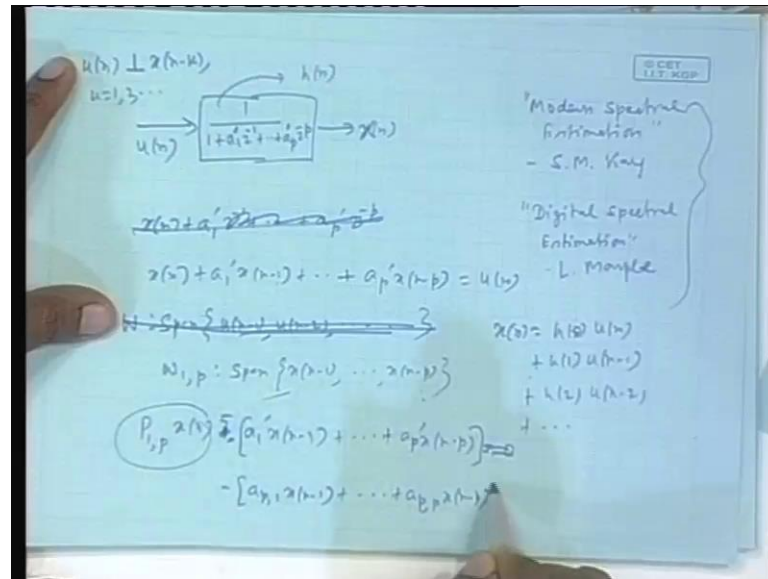 u(n) ⊥ x(n-k),
k=1,3...
h(n)
u(n) → 1 / 1+a'₁z⁻¹+...+a'ₚz⁻ᵖ → x(n)
© CET
I.I.T. KGP
"Modern Spectral
Estimation"
- S.M. Kay
"Digital Spectral
Estimation"
- L. Marple
x(n)+a₁'x(n-1)+...+aₚ'x(n-p) = u(n)
W : Span {
W₁,ₚ : Span {x(n-1), ..., x(n-p)}
x(n) = h(0) u(n)
+ h(1) u(n-1)
+ h(2) u(n-2)
+ ...
P₁,ₚ x(n) = -[a₁'x(n-1)+...+aₚ'x(n-p)]
-[aₚ,₁x(n-1)+...+aₚ,ₚx(n-p)